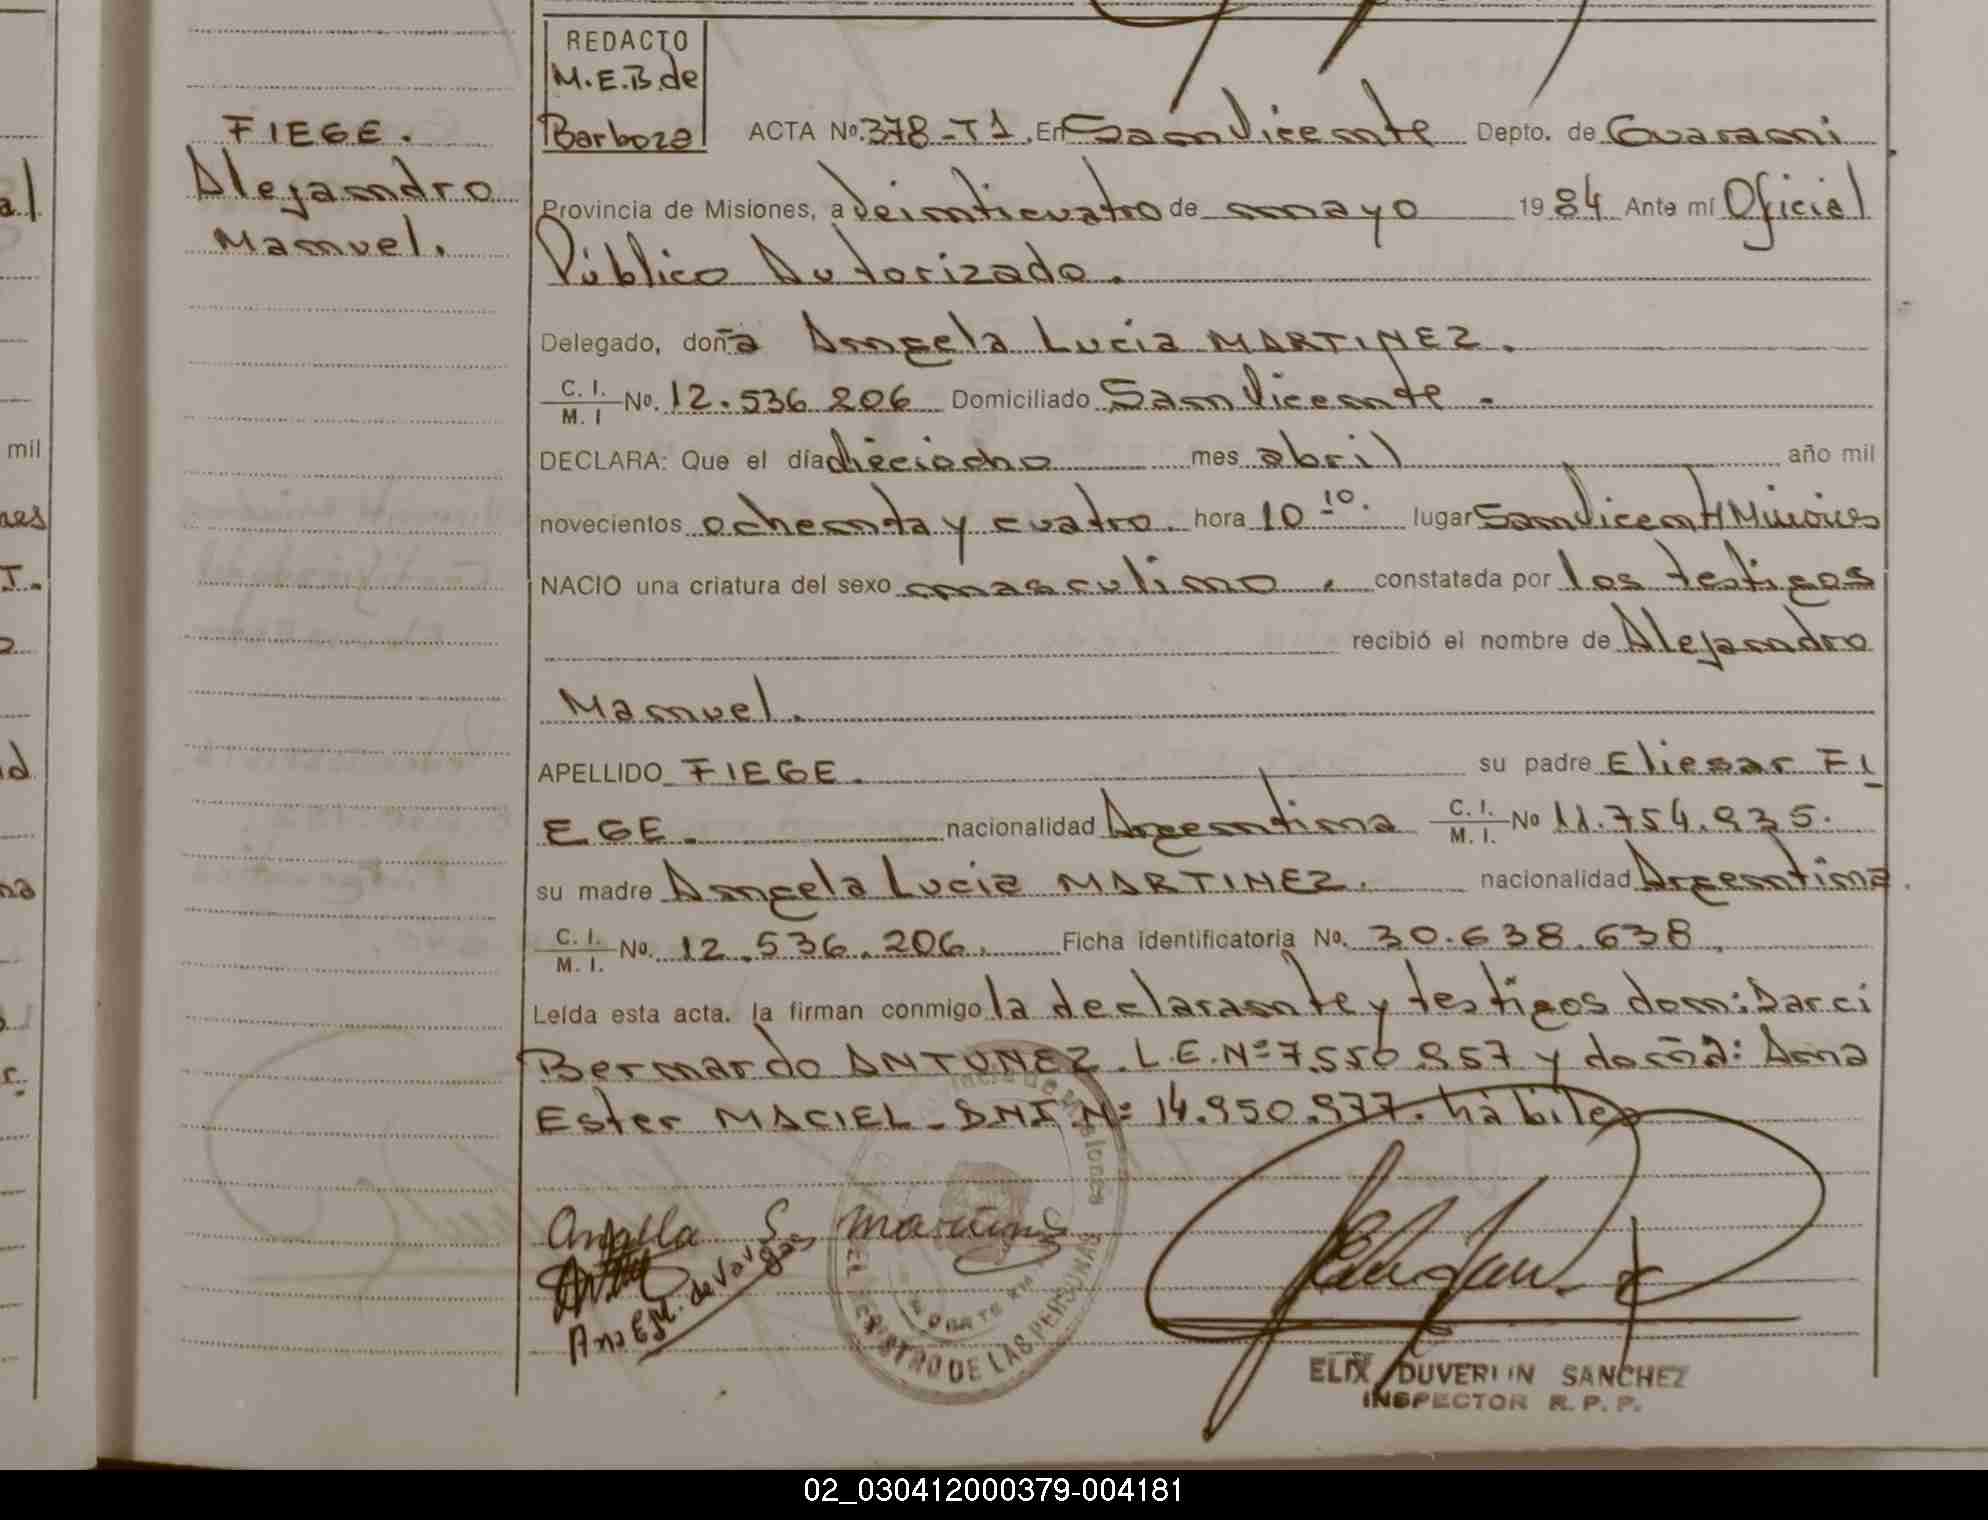 REDACTO
M.E.B. de
Barboza
FIEGE.
Alejandro
Manuel.
ACTA Nº. 378-T1. En San Vicente Depto. de Guarani
Provincia de Misiones, a Veinticuatro de mayo 1984 Ante mí Oficial
Público Autorizado.
Delegado, doña Angela Lucia MARTINEZ.
C. I. / M. I Nº. 12.536.206 Domiciliado San Vicente.
DECLARA: Que el día dieciocho mes abril año mil
novecientos ochenta y cuatro. hora 10 10. lugar San Vicente Misiones
NACIO una criatura del sexo masculino. constatada por los testigos
recibió el nombre de Alejandro
Manuel.
APELLIDO FIEGE. su padre Eliesar FI
EGE. nacionalidad Argentina C. I. / M. I. Nº 11.754.935.
su madre Angela Lucia MARTINEZ. nacionalidad Argentina.
C. I. / M. I. Nº. 12.536.206. Ficha identificatoria Nº. 30.638.638.
Leída esta acta. la firman conmigo la declarante y testigos don: Darci
Bernardo ANTUNEZ. L.E.Nº 7.550.957 y doña: Ana
Ester MACIEL - DNI Nº 14.950.977. hábiles
Angela L Martinez
Ana Est. de Vargas
REGISTRO DE LAS PERSONAS
ELIX DUVERLIN SANCHEZ
INSPECTOR R. P. P.
mil
02_030412000379-004181